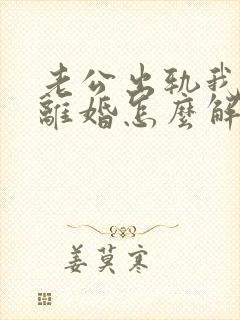 老公出軌我
離婚怎麼解
姜莫寒